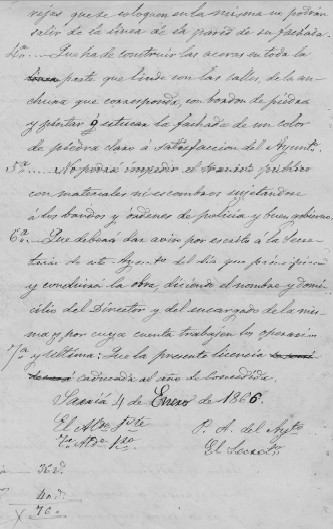 rejas que se coloquen en la misma no podrán
salir de la linea de la pared de su fachada.
4a.... Que ha de construir las aceras en toda la
linea parte que linde con las calles, de la an-
chura que corresponda, con bordon de piedra
y pintar ó estucar la fachada de un color
de piedra claro á satisfaccion del Ayuntº
5a.... No podrá impedir el transito publico
con materiales ni escombros sujetandose
á los bandos y órdenes de policia y buen gobierno.
6a.... Que deberá dar aviso por escrito á la Secre-
taria de este Ayto del dia que principie
y concluirá la obra, diciendo el nombre y domi-
cilio del Director y del encargado de la mis-
ma y por cuya cuenta trabajen los operarios
7a y ultima: Que la presente licencia
caducada al año de concedida.
Sarriá 4 de Enero de 1866.
El Alde Pte
P. A. del Ayto
El Secreto